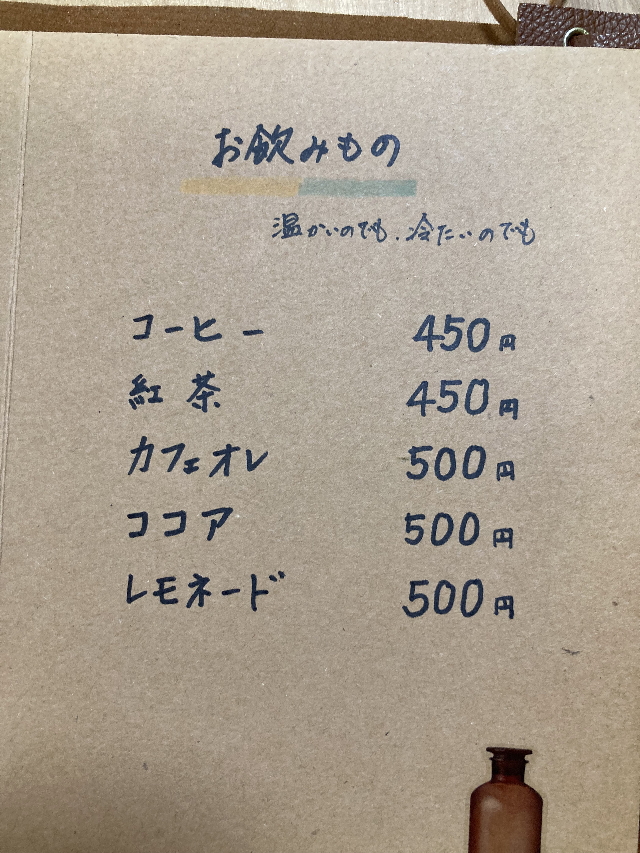 お飲みもの
温かいのでも、冷たいのでも
コーヒー 450円
紅茶 450円
カフェオレ 500円
ココア 500円
レモネード 500円